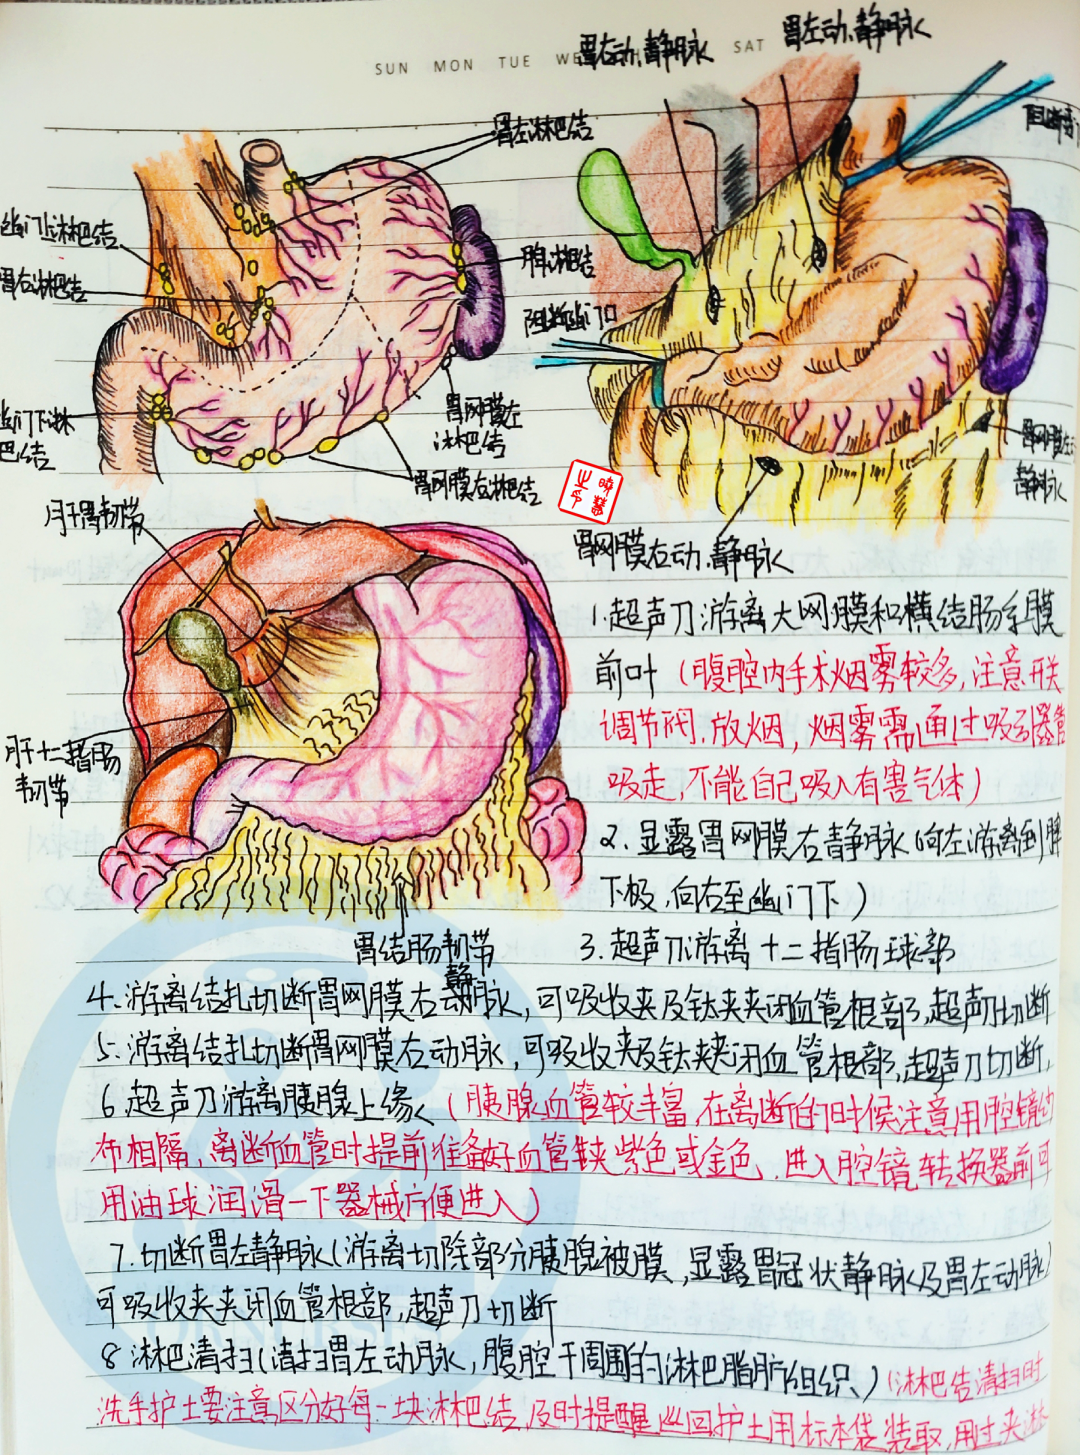 SUN MON TUE WE SAT
胃右动.静脉
胃左动.静脉
胃左淋巴结
幽门上淋巴结
胃右淋巴结
脾淋巴结
阻断幽门
幽门下淋
巴结
胃网膜左
淋巴结
胃网膜右淋巴结
胃网膜左
静脉
胃网膜右动.静脉
肝胃韧带
肝十二指肠
韧带
胃结肠韧带
1.超声刀游离大网膜和横结肠系膜
前叶(腹腔内手术烟雾较多,注意开关
调节阀.放烟,烟雾需通过吸引器管
吸走,不能自己吸入有害气体)
2.显露胃网膜右静脉(向左游离到脾
下极,向右至幽门下)
3.超声刀游离十二指肠球部
4.游离结扎切断胃网膜右静脉,可吸收夹及钛夹夹闭血管根部,超声刀切断
5.游离结扎切断胃网膜右动脉,可吸收夹及钛夹夹闭血管根部,超声刀切断,
6.超声刀游离胰腺上缘(胰腺血管较丰富,在离断的时候注意用腔镜纱
布相隔,离断血管时提前准备好血管夹紫色或金色.进入腔镜转换器前可
用油球润滑一下器械方便进入)
7.切断胃左静脉(游离切除部分胰腺被膜,显露胃冠状静脉及胃左动脉)
可吸收夹夹闭血管根部,超声刀切断
8淋巴清扫(清扫胃左动脉,腹腔干周围的淋巴脂肪组织)(淋巴结清扫时
洗手护士要注意区分好每一块淋巴结,及时提醒巡回护士用标本袋装取,用过夹